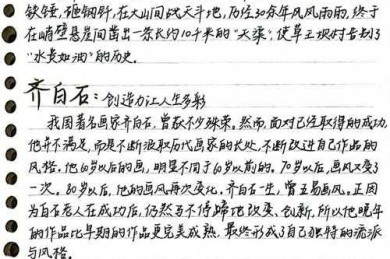 铁锤,砸钢钎,在大山间战天斗地,历经30余年风风雨雨,终于
在峭壁悬崖间凿出一条长约10千米的“天渠”,使草王坝村告别了
“水贵如油”的历史。
齐白石:创造力让人生多彩
我国著名画家齐白石,曾获不少殊荣。然而,面对已经取得的成功,
他并不满足,而是不断汲取历代画家的长处,不断改进自己作品的
风格。他60岁以后的画,明显不同于60岁以前的。70岁以后,画风又变了
一次。80岁以后,他的画风再次变化。齐白石一生,曾五易画风。正因
为白石老人在成功后,仍然马不停蹄地改变、创新,所以他晚年
的作品比早期的作品更完美成熟,最终形成了自己独特的流派
与风格。